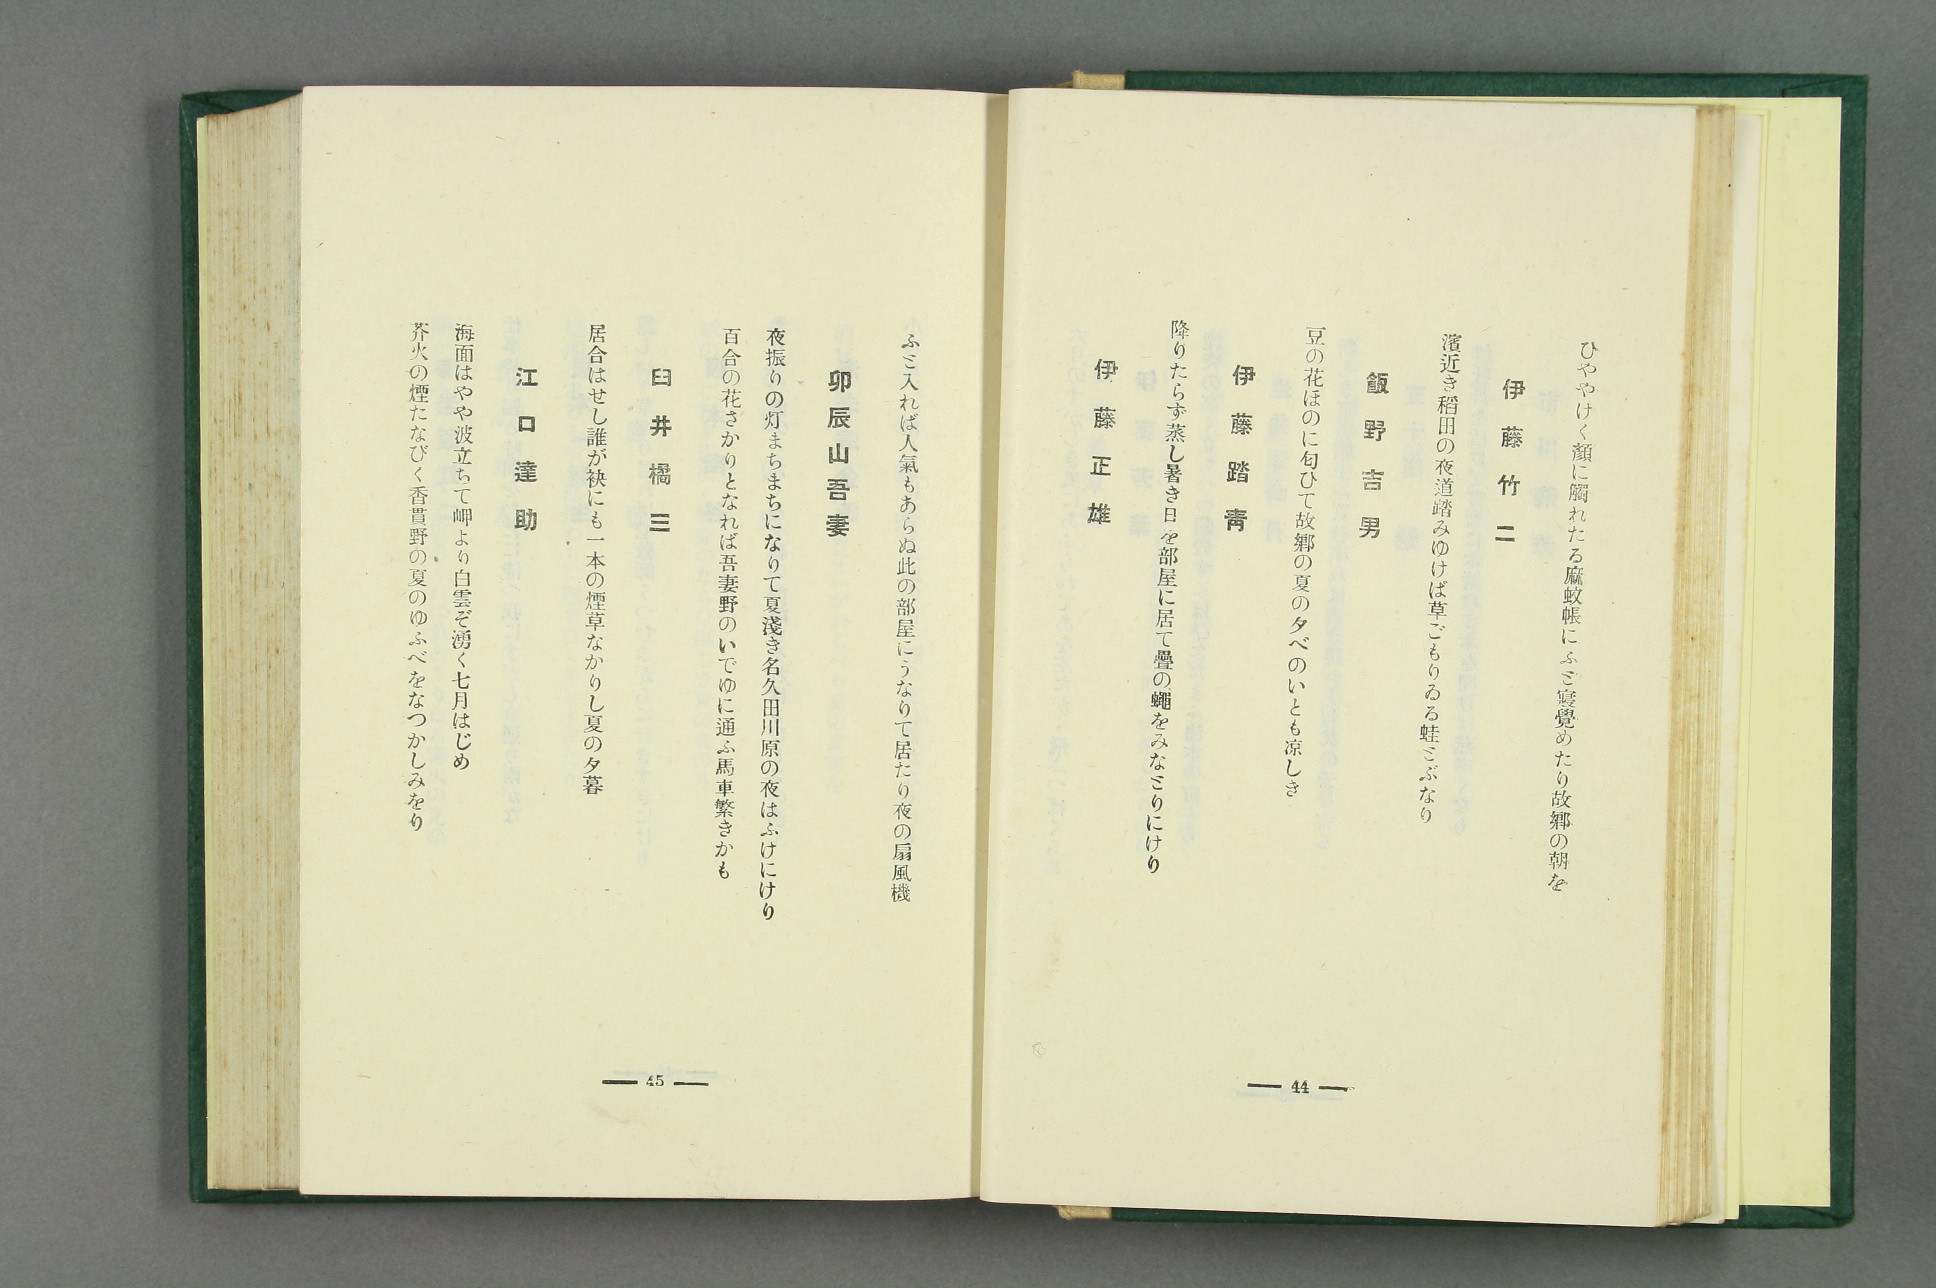 ひややけく顏に觸れたる麻蚊帳にふと寢覺めたり故郷の朝を
伊藤竹二
濱近き稻田の夜道踏みゆけば草ごもりゐる蛙とぶなり
飯野吉男
豆の花ほのに匂ひて故郷の夏の夕べのいとも凉しき
伊藤踏青
降りたらず蒸し暑き日を部屋に居て疊の蠅をみなとりにけり
伊藤正雄
― 44 ―
ふと入れば人氣もあらぬ此の部屋にうなりて居たり夜の扇風機
卯辰山吾妻
夜振りの灯まちまちになりて夏淺き名久田川原の夜はふけにけり
百合の花さかりとなれば吾妻野のいでゆに通ふ馬車繁きかも
臼井橘三
居合はせし誰が袂にも一本の煙草なかりし夏の夕暮
江口達助
海面はやや波立ちて岬より白雲ぞ湧く七月はじめ
芥火の煙たなびく香貫野の夏のゆふべをなつかしみをり
― 45 ―